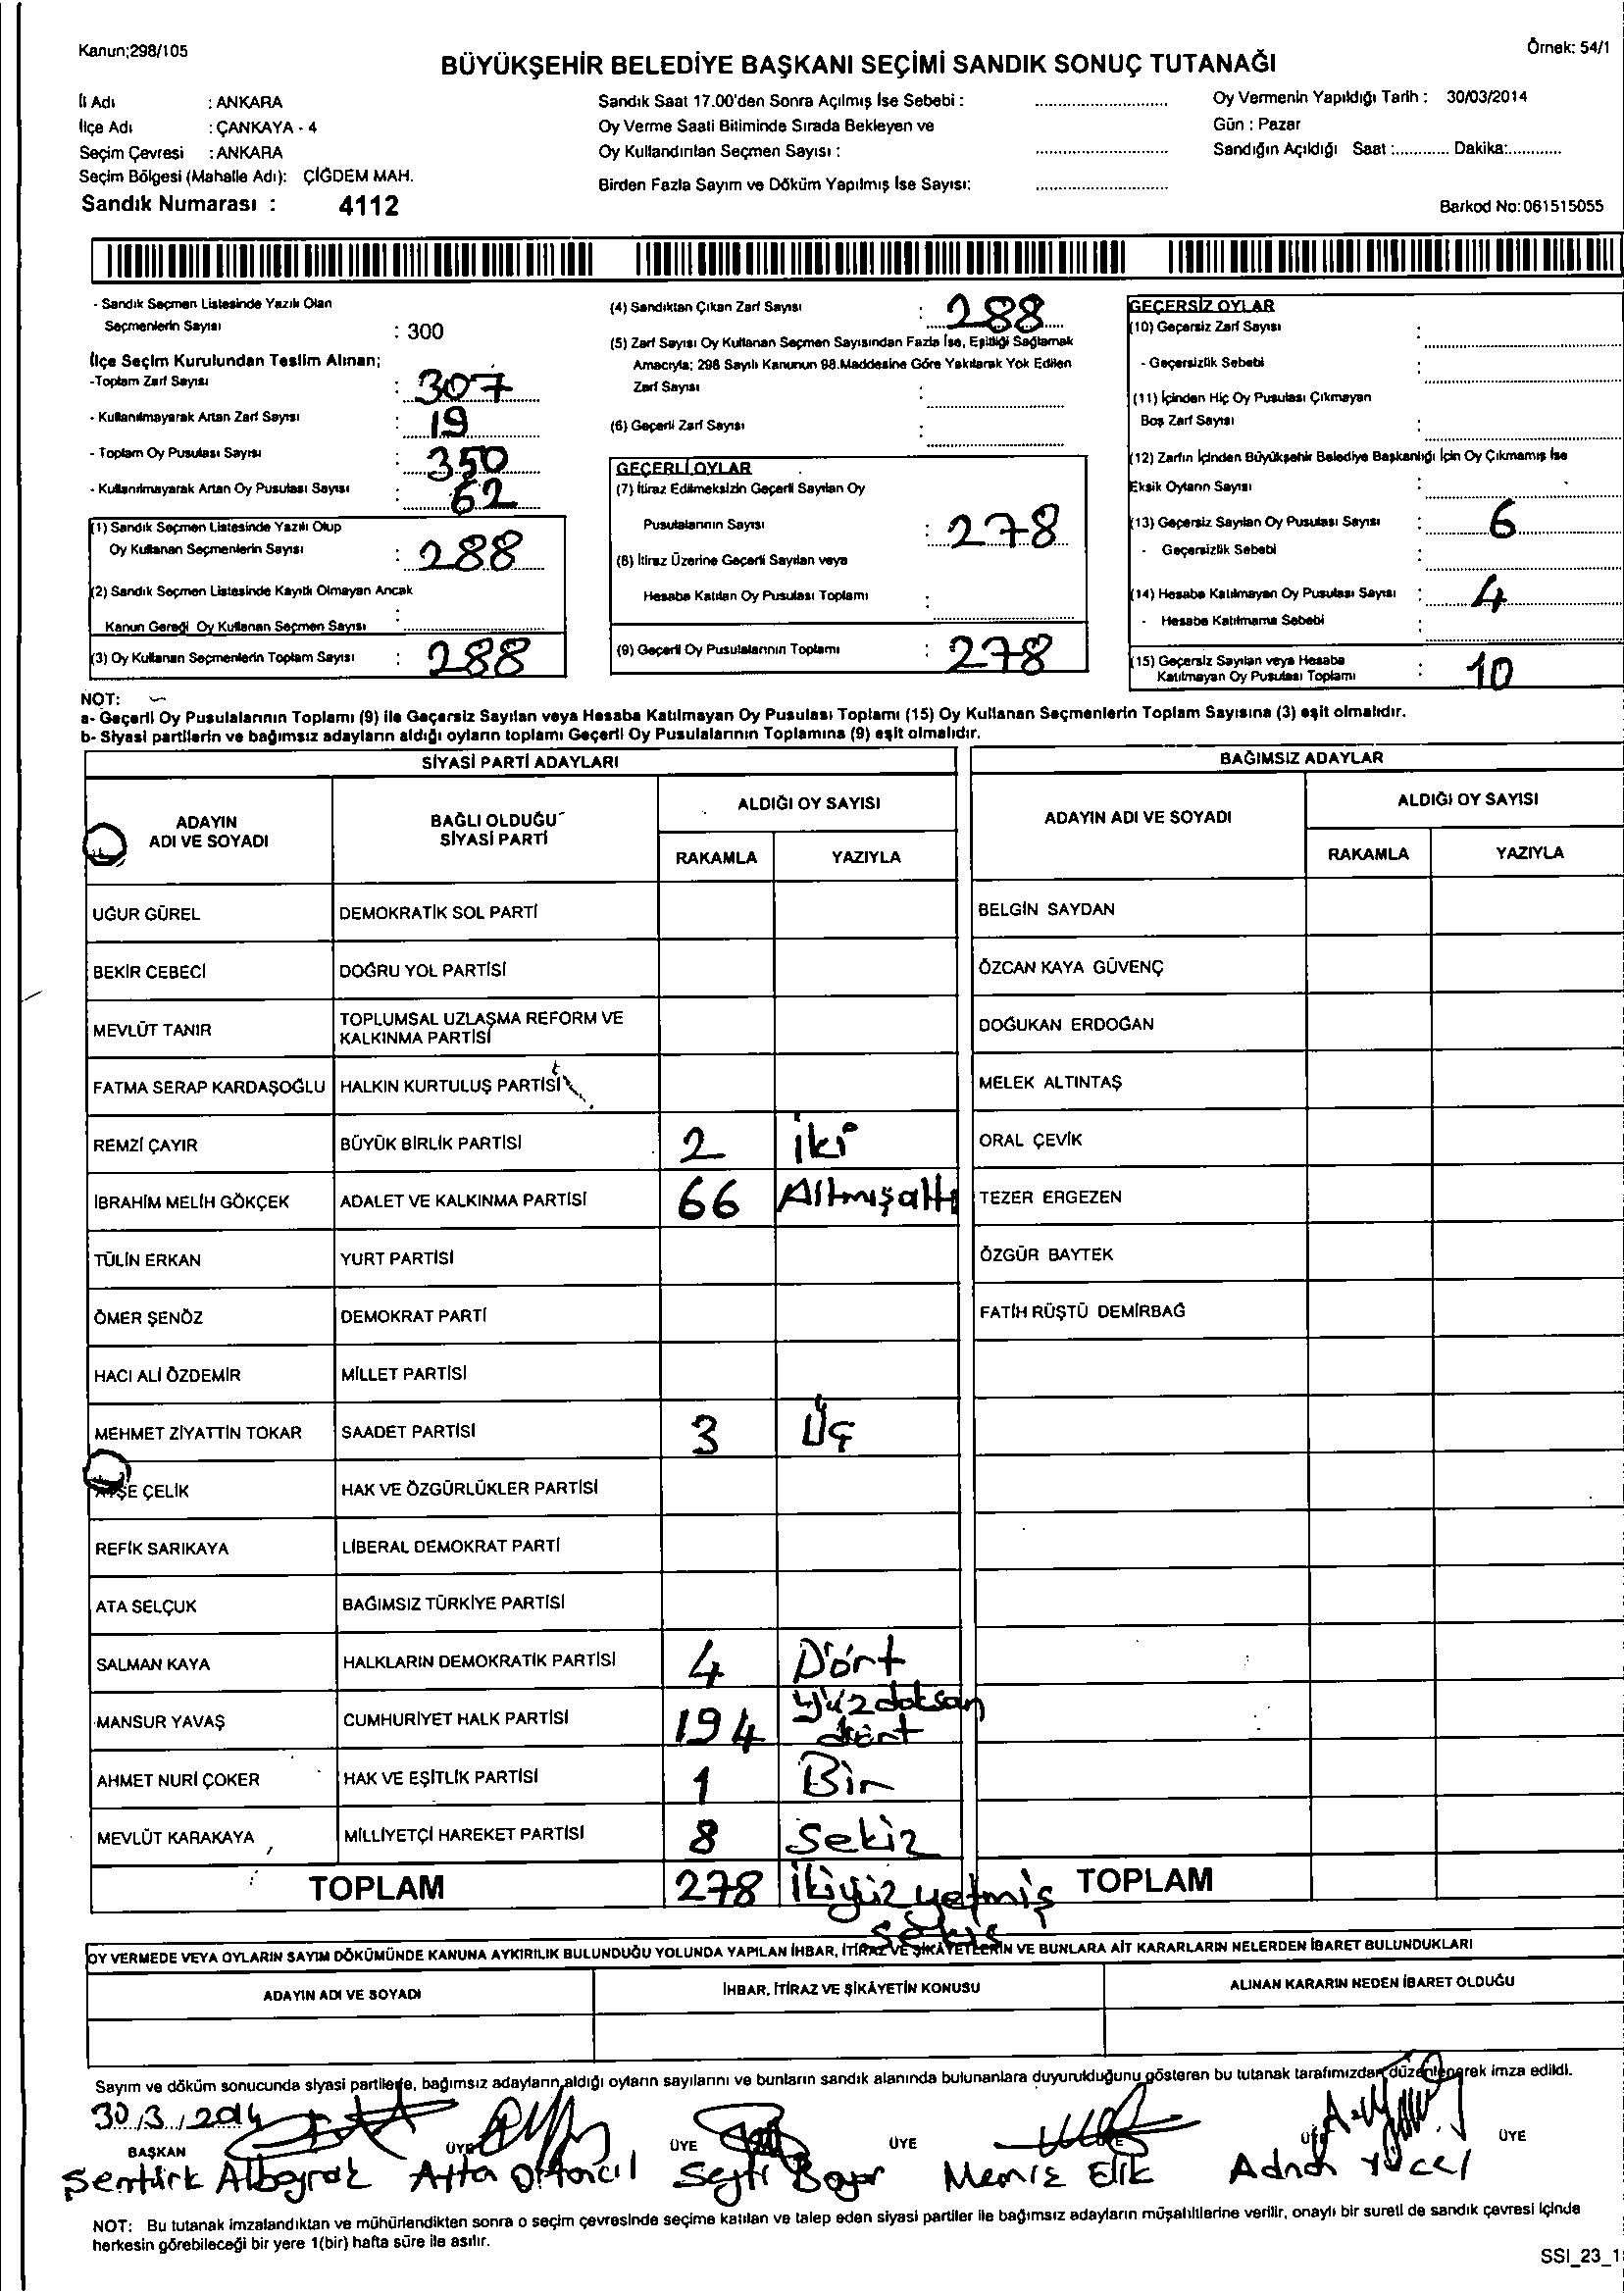 Kanun;298/105
Örnek: 54/1
BÜYÜKŞEHİR BELEDİYE BAŞKANI SEÇİMİ SANDIK SONUÇ TUTANAĞI
İl Adı : ANKARA
İlçe Adı : ÇANKAYA - 4
Seçim Çevresi : ANKARA
Seçim Bölgesi (Mahalle Adı): ÇİĞDEM MAH.
Sandık Numarası : 4112
Sandık Saat 17.00'den Sonra Açılmış İse Sebebi :
Oy Verme Saati Bitiminde Sırada Bekleyen ve
Oy Kullandırılan Seçmen Sayısı :
Birden Fazla Sayım ve Döküm Yapılmış İse Sayısı:
Oy Vermenin Yapıldığı Tarih : 30/03/2014
Gün : Pazar
Sandığın Açıldığı Saat :............ Dakika:............
Barkod No:061515055
- Sandık Seçmen Listesinde Yazılı Olan
Seçmenlerin Sayısı : 300
İlçe Seçim Kurulundan Teslim Alınan;
-Toplam Zarf Sayısı : 307
- Kullanılmayarak Artan Zarf Sayısı : 19
- Toplam Oy Pusulası Sayısı : 350
- Kullanılmayarak Artan Oy Pusulası Sayısı : 62
(1) Sandık Seçmen Listesinde Yazılı Olup
Oy Kullanan Seçmenlerin Sayısı : 288
(2) Sandık Seçmen Listesinde Kayıtlı Olmayan Ancak
Kanun Gereği Oy Kullanan Seçmen Sayısı :
(3) Oy Kullanan Seçmenlerin Toplam Sayısı : 288
(4) Sandıktan Çıkan Zarf Sayısı : 288
(5) Zarf Sayısı Oy Kullanan Seçmen Sayısından Fazla İse, Eşitliği Sağlamak
Amacıyla; 298 Sayılı Kanunun 98.Maddesine Göre Yakılarak Yok Edilen
Zarf Sayısı :
(6) Geçerli Zarf Sayısı :
GEÇERLİ OYLAR
(7) İtiraz Edilmeksizin Geçerli Sayılan Oy
Pusulalarının Sayısı : 278
(8) İtiraz Üzerine Geçerli Sayılan veya
Hesaba Katılan Oy Pusulası Toplamı :
(9) Geçerli Oy Pusulalarının Toplamı : 278
GEÇERSİZ OYLAR
(10) Geçersiz Zarf Sayısı :
- Geçersizlik Sebebi :
(11) İçinden Hiç Oy Pusulası Çıkmayan
Boş Zarf Sayısı :
(12) Zarfın İçinden Büyükşehir Belediye Başkanlığı İçin Oy Çıkmamış İse
Eksik Oyların Sayısı :
(13) Geçersiz Sayılan Oy Pusulası Sayısı : 6
- Geçersizlik Sebebi :
(14) Hesaba Katılmayan Oy Pusulası Sayısı : 4
- Hesaba Katılmama Sebebi :
(15) Geçersiz Sayılan veya Hesaba
Katılmayan Oy Pusulası Toplamı : 10
NOT:
a- Geçerli Oy Pusulalarının Toplamı (9) ile Geçersiz Sayılan veya Hesaba Katılmayan Oy Pusulası Toplamı (15) Oy Kullanan Seçmenlerin Toplam Sayısına (3) eşit olmalıdır.
b- Siyasi partilerin ve bağımsız adayların aldığı oyların toplamı Geçerli Oy Pusulalarının Toplamına (9) eşit olmalıdır.
SİYASİ PARTİ ADAYLARI
BAĞIMSIZ ADAYLAR
ADAYIN ADI VE SOYADI
BAĞLI OLDUĞU SİYASİ PARTİ
ALDIĞI OY SAYISI
RAKAMLA YAZIYLA
ADAYIN ADI VE SOYADI
ALDIĞI OY SAYISI
RAKAMLA YAZIYLA
UĞUR GÜREL DEMOKRATİK SOL PARTİ BELGİN SAYDAN
BEKİR CEBECİ DOĞRU YOL PARTİSİ ÖZCAN KAYA GÜVENÇ
MEVLÜT TANIR TOPLUMSAL UZLAŞMA REFORM VE KALKINMA PARTİSİ DOĞUKAN ERDOĞAN
FATMA SERAP KARDAŞOĞLU HALKIN KURTULUŞ PARTİSİ MELEK ALTINTAŞ
REMZİ ÇAYIR BÜYÜK BİRLİK PARTİSİ 2 iki ORAL ÇEVİK
İBRAHİM MELİH GÖKÇEK ADALET VE KALKINMA PARTİSİ 66 Altmışaltı TEZER ERGEZEN
TÜLİN ERKAN YURT PARTİSİ ÖZGÜR BAYTEK
ÖMER ŞENÖZ DEMOKRAT PARTİ FATİH RÜŞTÜ DEMİRBAĞ
HACI ALİ ÖZDEMİR MİLLET PARTİSİ
MEHMET ZİYATTİN TOKAR SAADET PARTİSİ 3 Üç
ÇELİK HAK VE ÖZGÜRLÜKLER PARTİSİ
REFİK SARIKAYA LİBERAL DEMOKRAT PARTİ
ATA SELÇUK BAĞIMSIZ TÜRKİYE PARTİSİ
SALMAN KAYA HALKLARIN DEMOKRATİK PARTİSİ 4 Dört
MANSUR YAVAŞ CUMHURİYET HALK PARTİSİ 194 yüzdoksan dört
AHMET NURİ ÇOKER HAK VE EŞİTLİK PARTİSİ 1 Bir
MEVLÜT KARAKAYA MİLLİYETÇİ HAREKET PARTİSİ 8 sekiz
TOPLAM 278 ikiyüz yetmiş sekis TOPLAM
OY VERMEDE VEYA OYLARIN SAYIM DÖKÜMÜNDE KANUNA AYKIRILIK BULUNDUĞU YOLUNDA YAPILAN İHBAR, İTİRAZ VE ŞİKÂYETLERİN VE BUNLARA AİT KARARLARIN NELERDEN İBARET BULUNDUKLARI
ADAYIN ADI VE SOYADI
İHBAR, İTİRAZ VE ŞİKÂYETİN KONUSU
ALINAN KARARIN NEDEN İBARET OLDUĞU
Sayım ve döküm sonucunda siyasi partilere, bağımsız adayların aldığı oyların sayılarını ve bunların sandık alanında bulunanlara duyurulduğunu gösteren bu tutanak tarafımızdan düzenlenerek imza edildi.
30/3/2014
BAŞKAN ÜYE ÜYE ÜYE ÜYE ÜYE
Şentürk Albayrak Adnan Yücel
NOT: Bu tutanak imzalandıktan ve mühürlendikten sonra o seçim çevresinde seçime katılan ve talep eden siyasi partiler ile bağımsız adayların müşahitlerine verilir, onaylı bir sureti de sandık çevresi içinde
herkesin görebileceği bir yere 1(bir) hafta süre ile asılır.
SSI_23_1